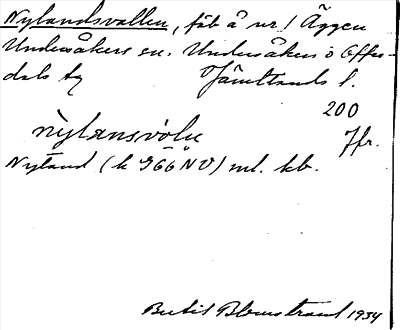 Nylandsvallen, fäb å nr 1 Äggen
Undersåkers sn. Undersåkers o Offer-
dals tg Jämtlands l.
200
nỳlansvòlu Jfr.
Nyland (k 966 NV) ml. kb.
Bertil Blomstrand 1934